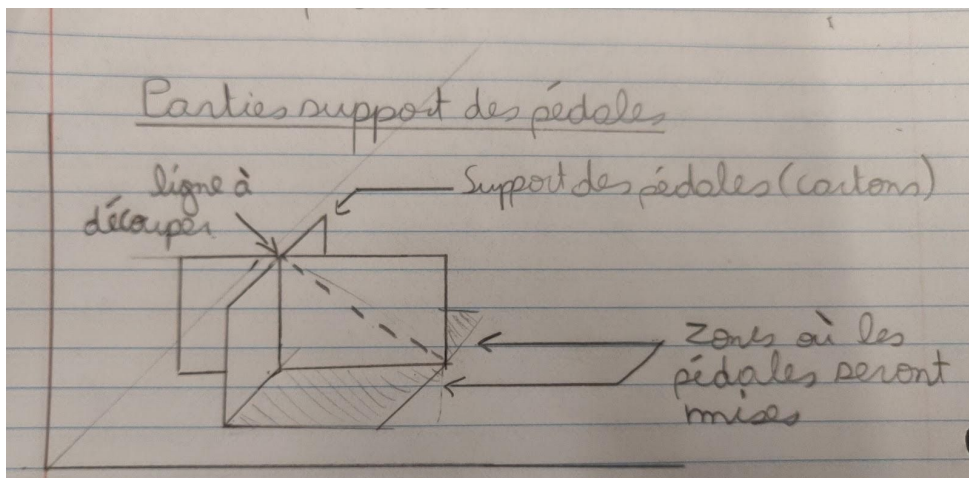 Parties support des pédales
ligne à
découper
Support des pédales (cartons)
Zones où les
pédales seront
mises